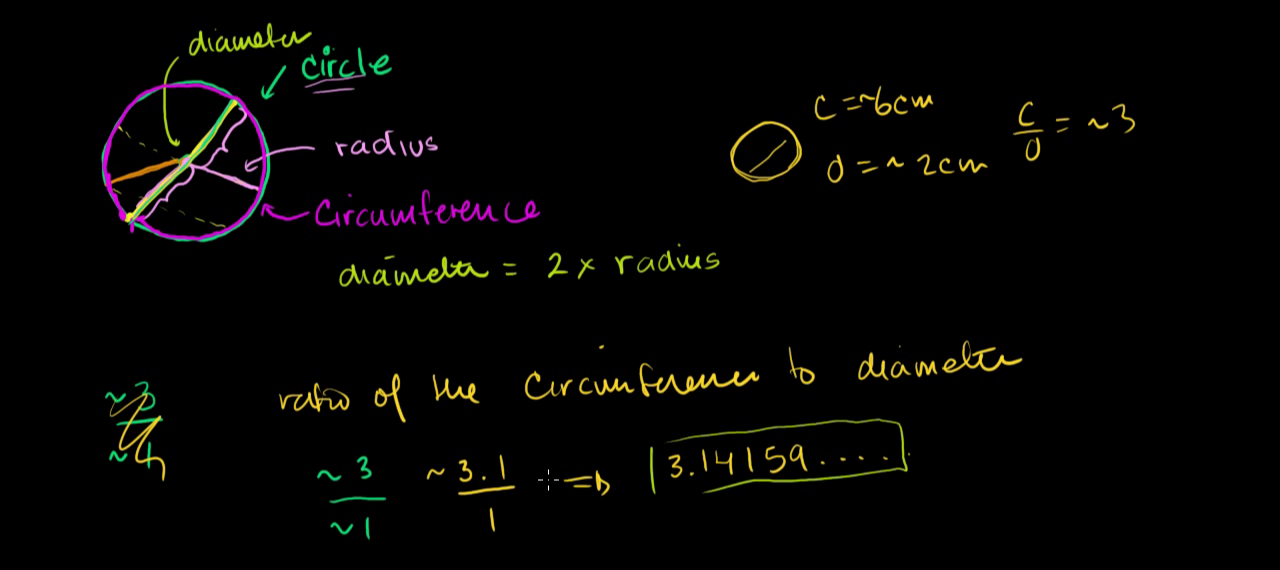 diameter
circle
radius
circumference
diameter = 2 × radius
c = ~6cm
d = ~ 2cm
c/d = ~3
ratio of the circumference to diameter
~3
~3/~1
~3.1/1
⇒ 3.14159....